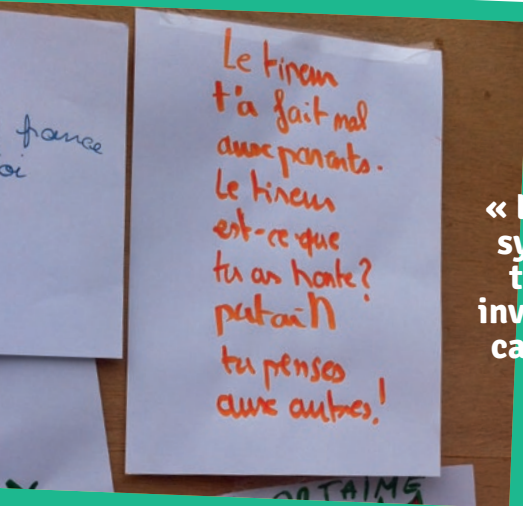 france
oi
Le tireur
t'a fait mal
aux parents.
Le tireur
est-ce que
tu as honte?
putain
tu penses
aux autres!
ORTAIME
« 
sy
t
inv
ca